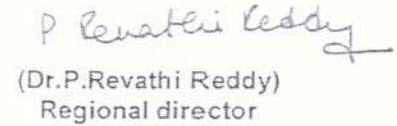 P Revathi Reddy
(Dr.P.Revathi Reddy)
Regional director